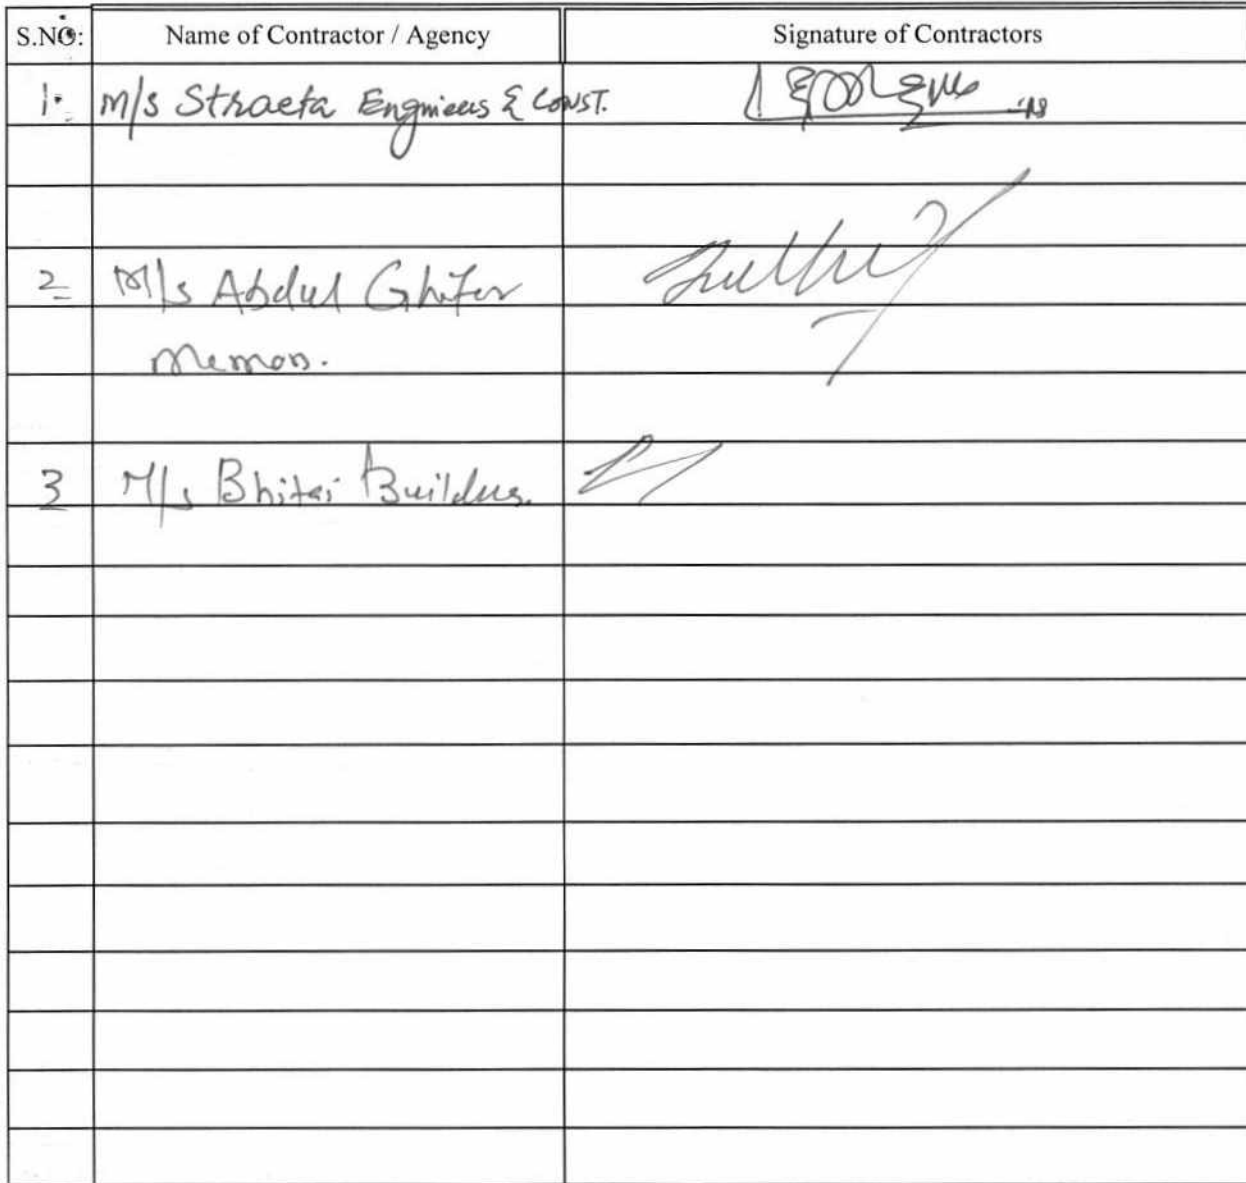 S.NO: Name of Contractor / Agency Signature of Contractors
1. M/s Straeta Engineers & CONST.
2 M/s Abdul Ghafar
Memon.
3 M/s Bhitai Builders.